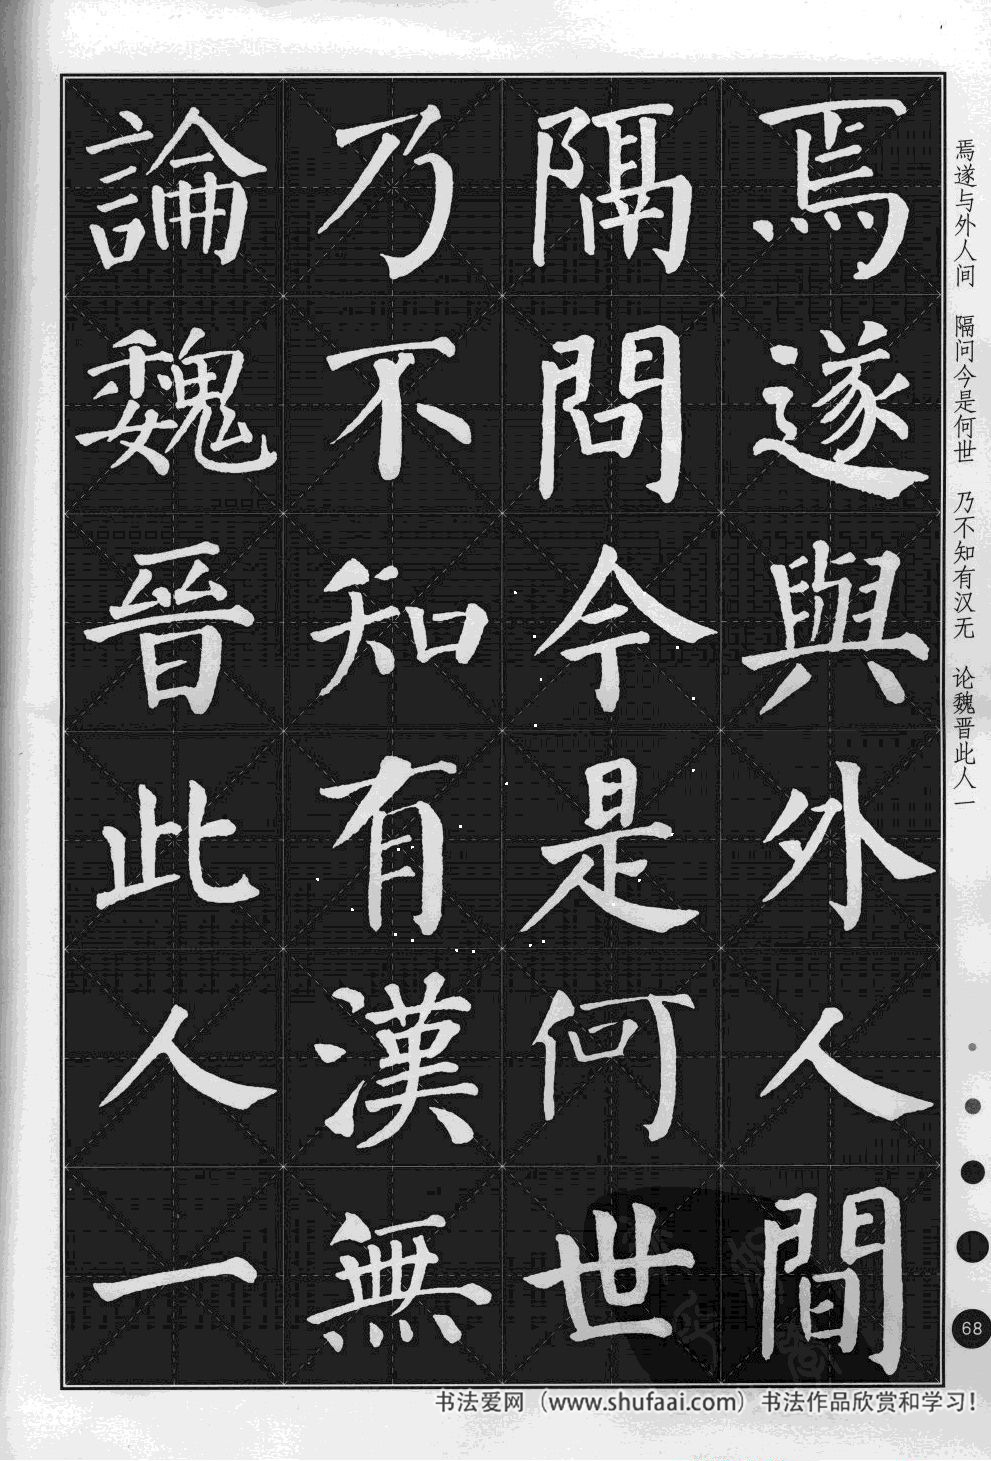 焉遂與外人間
隔問今是何世
乃不知有漢無
論魏晉此人一
焉遂与外人间 隔问今是何世 乃不知有汉无 论魏晋此人一
68
书法爱网（www.shufaai.com）书法作品欣赏和学习！